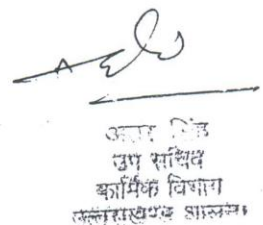 सिंह
उप सचिव
कार्मिक विभाग
उत्तराखण्ड शासन।